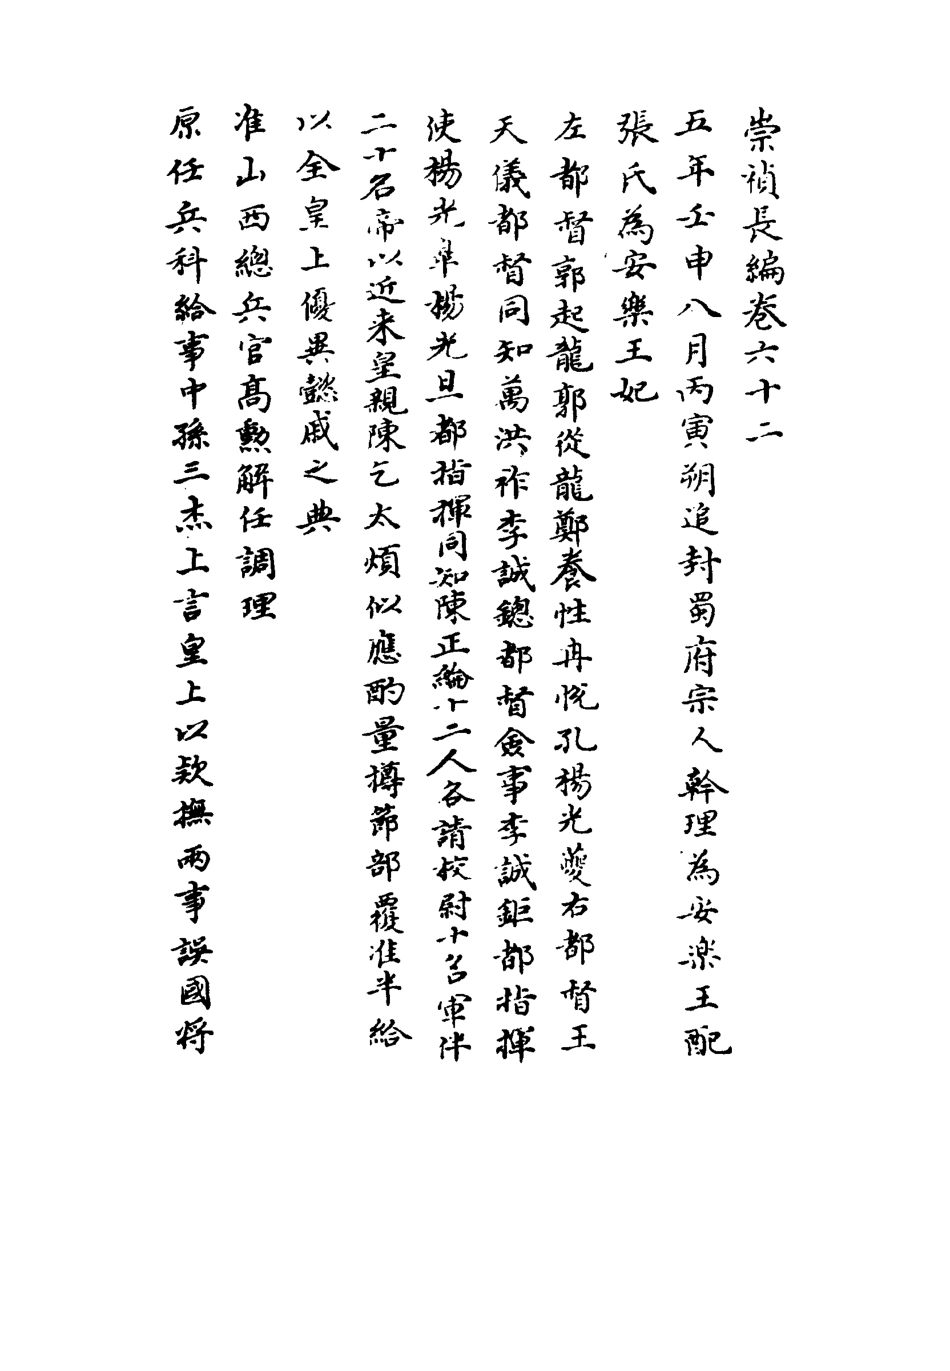 崇禎長編卷六十二
五年壬申八月丙寅朔追封蜀府宗人幹理為安樂王配
張氏為安樂王妃
左都督郭起龍郭從龍鄭養性冉悅孔楊光夔右都督王
天儀都督同知萬洪祚李誠鏓都督僉事李誠鉅都指揮
使楊光皐楊光旦都指揮同知陳正綸十二人各請校尉十名軍伴
二十名帝以近来皇親陳乞太煩似應酌量撙節部覆准半給
以全皇上優異懿戚之典
准山西總兵官高勲解任調理
原任兵科給事中孫三杰上言皇上以欵撫兩事誤國将